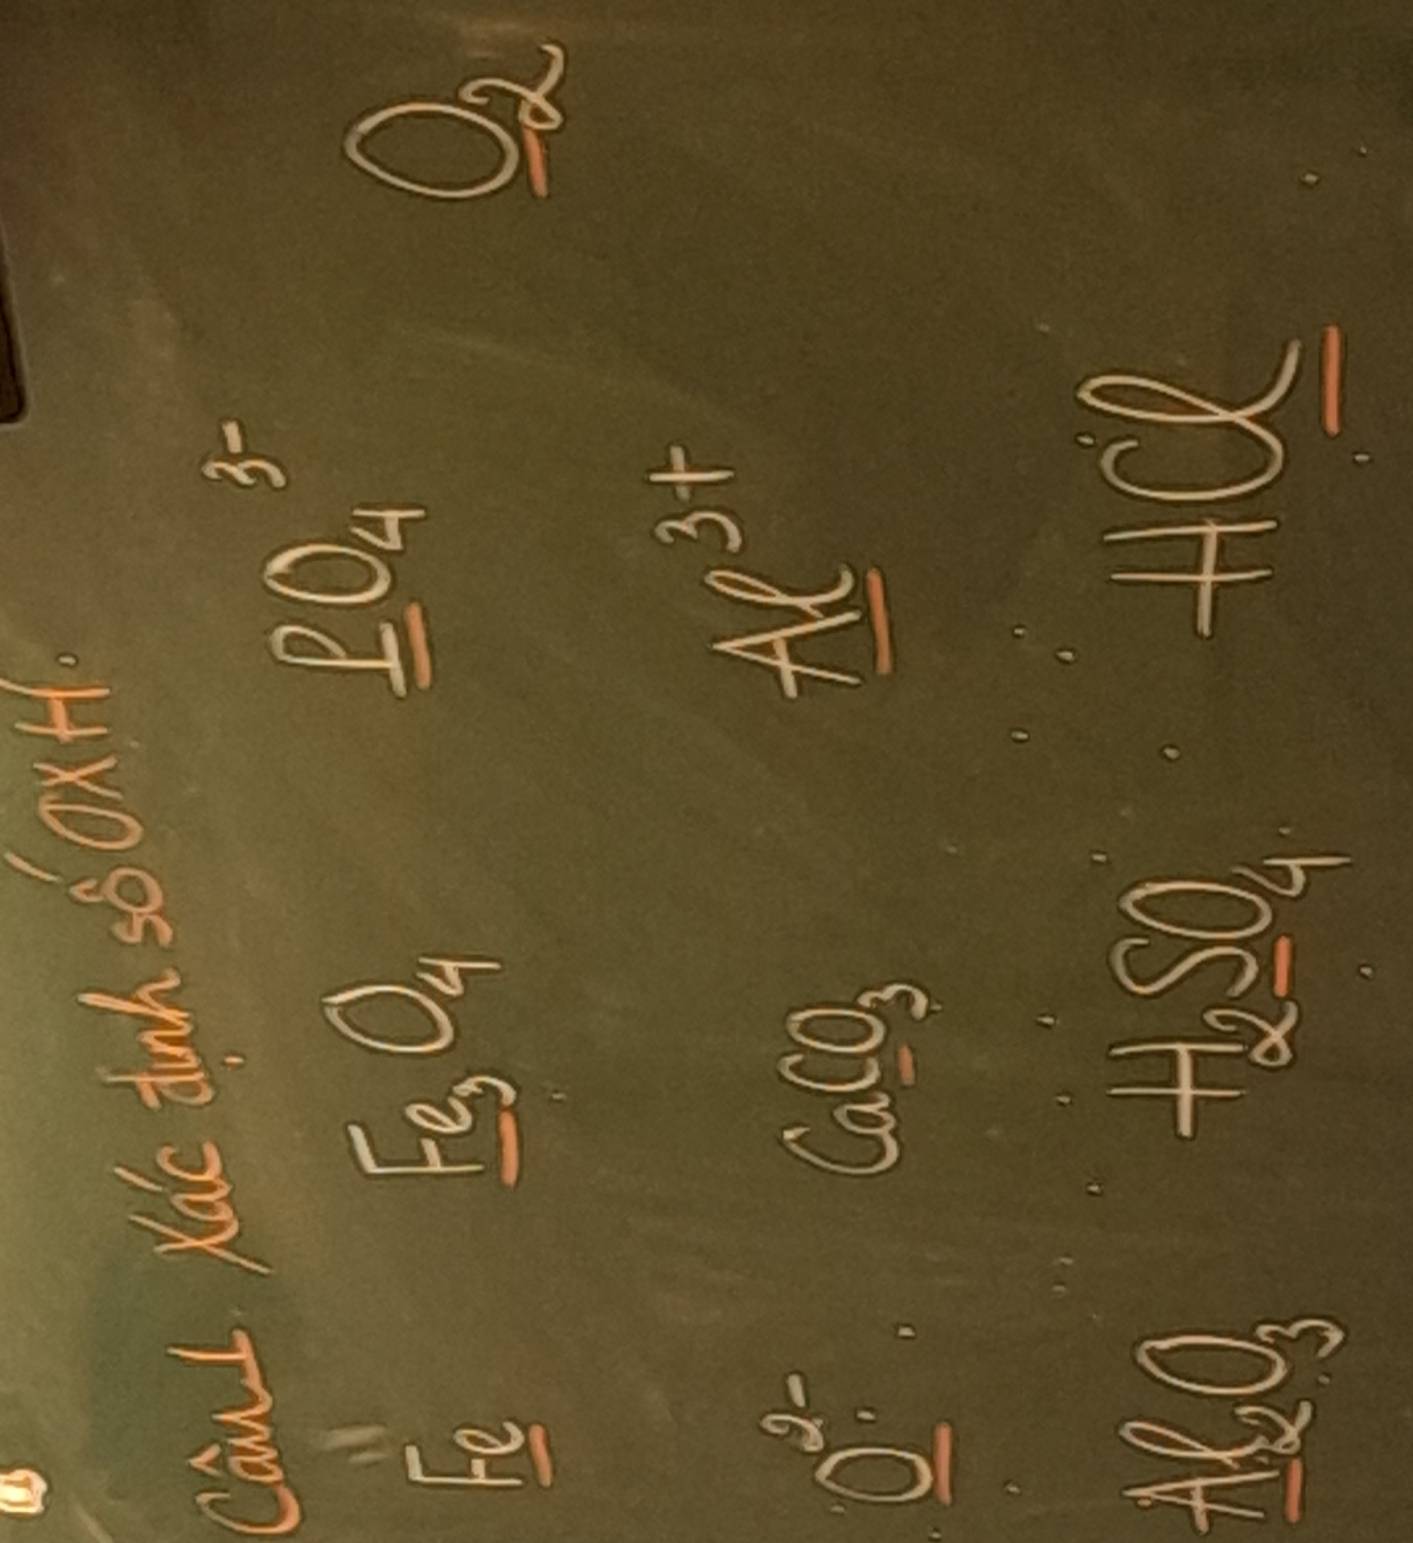 Câu 1 Xác định số OXH.
Fe Fe₃O₄ PO₄³⁻ O₂
O²⁻ CaCO₃ Al³⁺
Al₂O₃ H₂SO₄ HCl